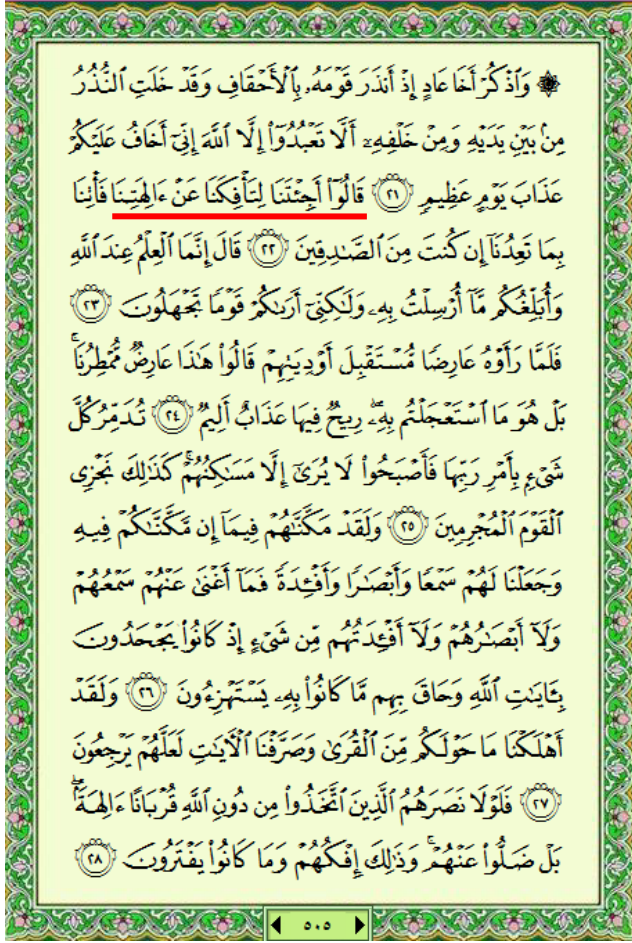 ۞ وَٱذْكُرْ أَخَا عَادٍ إِذْ أَنذَرَ قَوْمَهُۥ بِٱلْأَحْقَافِ وَقَدْ خَلَتِ ٱلنُّذُرُ
مِنۢ بَيْنِ يَدَيْهِ وَمِنْ خَلْفِهِۦٓ أَلَّا تَعْبُدُوٓا۟ إِلَّا ٱللَّهَ إِنِّىٓ أَخَافُ عَلَيْكُمْ
عَذَابَ يَوْمٍ عَظِيمٍ ﴿٢١﴾ قَالُوٓا۟ أَجِئْتَنَا لِتَأْفِكَنَا عَنْ ءَالِهَتِنَا فَأْتِنَا
بِمَا تَعِدُنَآ إِن كُنتَ مِنَ ٱلصَّٰدِقِينَ ﴿٢٢﴾ قَالَ إِنَّمَا ٱلْعِلْمُ عِندَ ٱللَّهِ
وَأُبَلِّغُكُم مَّآ أُرْسِلْتُ بِهِۦ وَلَٰكِنِّىٓ أَرَىٰكُمْ قَوْمًا تَجْهَلُونَ ﴿٢٣﴾
فَلَمَّا رَأَوْهُ عَارِضًا مُّسْتَقْبِلَ أَوْدِيَتِهِمْ قَالُوا۟ هَٰذَا عَارِضٌ مُّمْطِرُنَا ۚ
بَلْ هُوَ مَا ٱسْتَعْجَلْتُم بِهِۦ ۖ رِيحٌ فِيهَا عَذَابٌ أَلِيمٌ ﴿٢٤﴾ تُدَمِّرُ كُلَّ
شَىْءٍۭ بِأَمْرِ رَبِّهَا فَأَصْبَحُوا۟ لَا يُرَىٰٓ إِلَّا مَسَٰكِنُهُمْ ۚ كَذَٰلِكَ نَجْزِى
ٱلْقَوْمَ ٱلْمُجْرِمِينَ ﴿٢٥﴾ وَلَقَدْ مَكَّنَّٰهُمْ فِيمَآ إِن مَّكَّنَّٰكُمْ فِيهِ
وَجَعَلْنَا لَهُمْ سَمْعًا وَأَبْصَٰرًا وَأَفْـِٔدَةً فَمَآ أَغْنَىٰ عَنْهُمْ سَمْعُهُمْ
وَلَآ أَبْصَٰرُهُمْ وَلَآ أَفْـِٔدَتُهُم مِّن شَىْءٍ إِذْ كَانُوا۟ يَجْحَدُونَ
بِـَٔايَٰتِ ٱللَّهِ وَحَاقَ بِهِم مَّا كَانُوا۟ بِهِۦ يَسْتَهْزِءُونَ ﴿٢٦﴾ وَلَقَدْ
أَهْلَكْنَا مَا حَوْلَكُم مِّنَ ٱلْقُرَىٰ وَصَرَّفْنَا ٱلْـَٔايَٰتِ لَعَلَّهُمْ يَرْجِعُونَ
﴿٢٧﴾ فَلَوْلَا نَصَرَهُمُ ٱلَّذِينَ ٱتَّخَذُوا۟ مِن دُونِ ٱللَّهِ قُرْبَانًا ءَالِهَةًۢ ۖ
بَلْ ضَلُّوا۟ عَنْهُمْ ۚ وَذَٰلِكَ إِفْكُهُمْ وَمَا كَانُوا۟ يَفْتَرُونَ ﴿٢٨﴾
٥٠٥